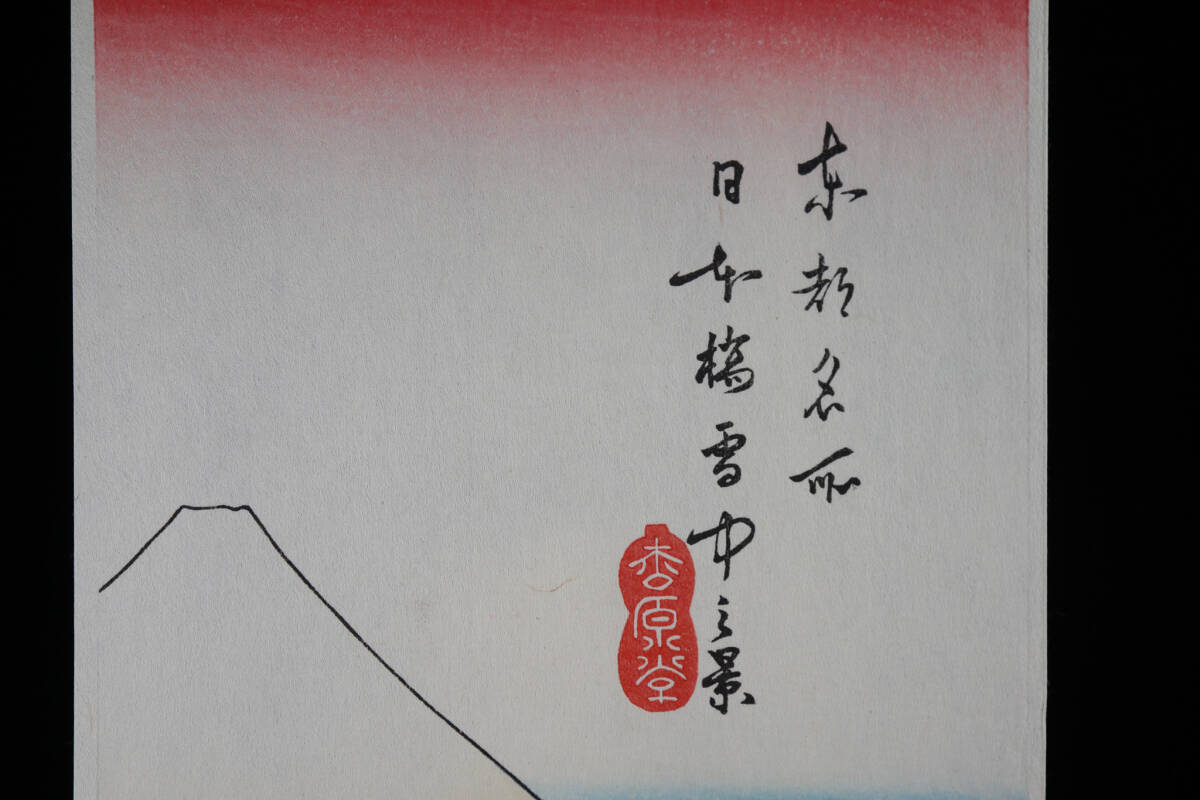 東都名所
日本橋雪中之景
杏原堂